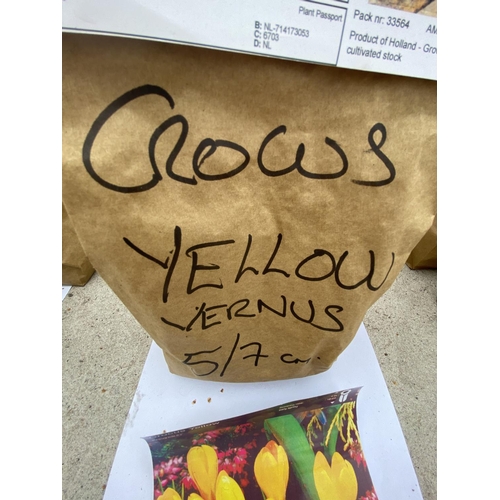 Plant Passport
B: NL-714173053
C: 6703
D: NL
Pack nr: 33564 AM
Product of Holland - Grow
cultivated stock
CROWS
YELLOW
VERNUS
5/7 cm.